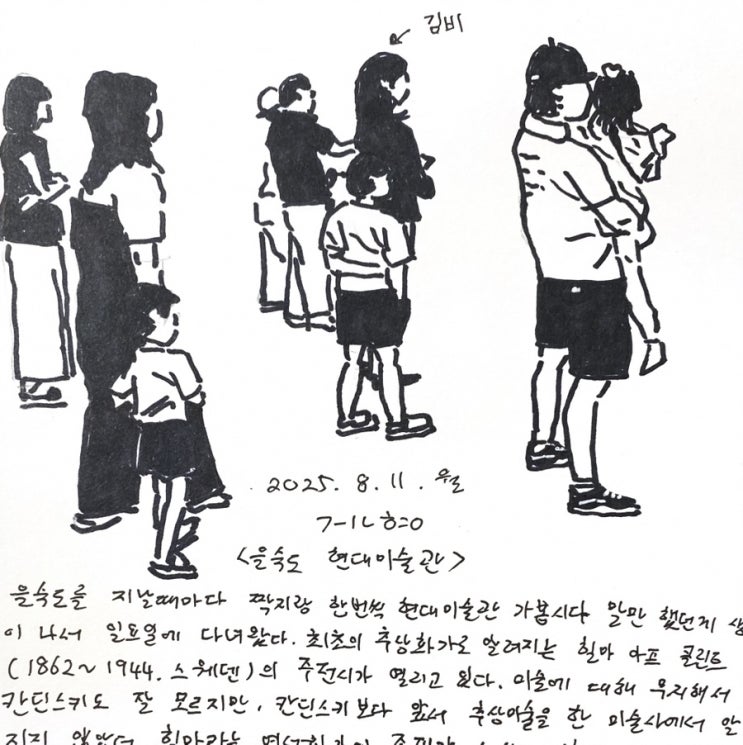 김비
2025. 8. 11. 월
<을숙도 현대미술관>
을숙도를 지날때마다 짝지랑 한번씩 현대미술관 가봅시다 말만 했던게 생
이 나서 일요일에 다녀왔다. 최초의 추상화가로 알려지는 힐마 아프 클린트
(1862~1944. 스웨덴)의 주전시가 열리고 있다. 미술에 대해 무지해서
칸딘스키도 잘 모르지만, 칸딘스키보다 앞서 추상미술을 한 미술사에서 알
지지 않았던 힐마라는